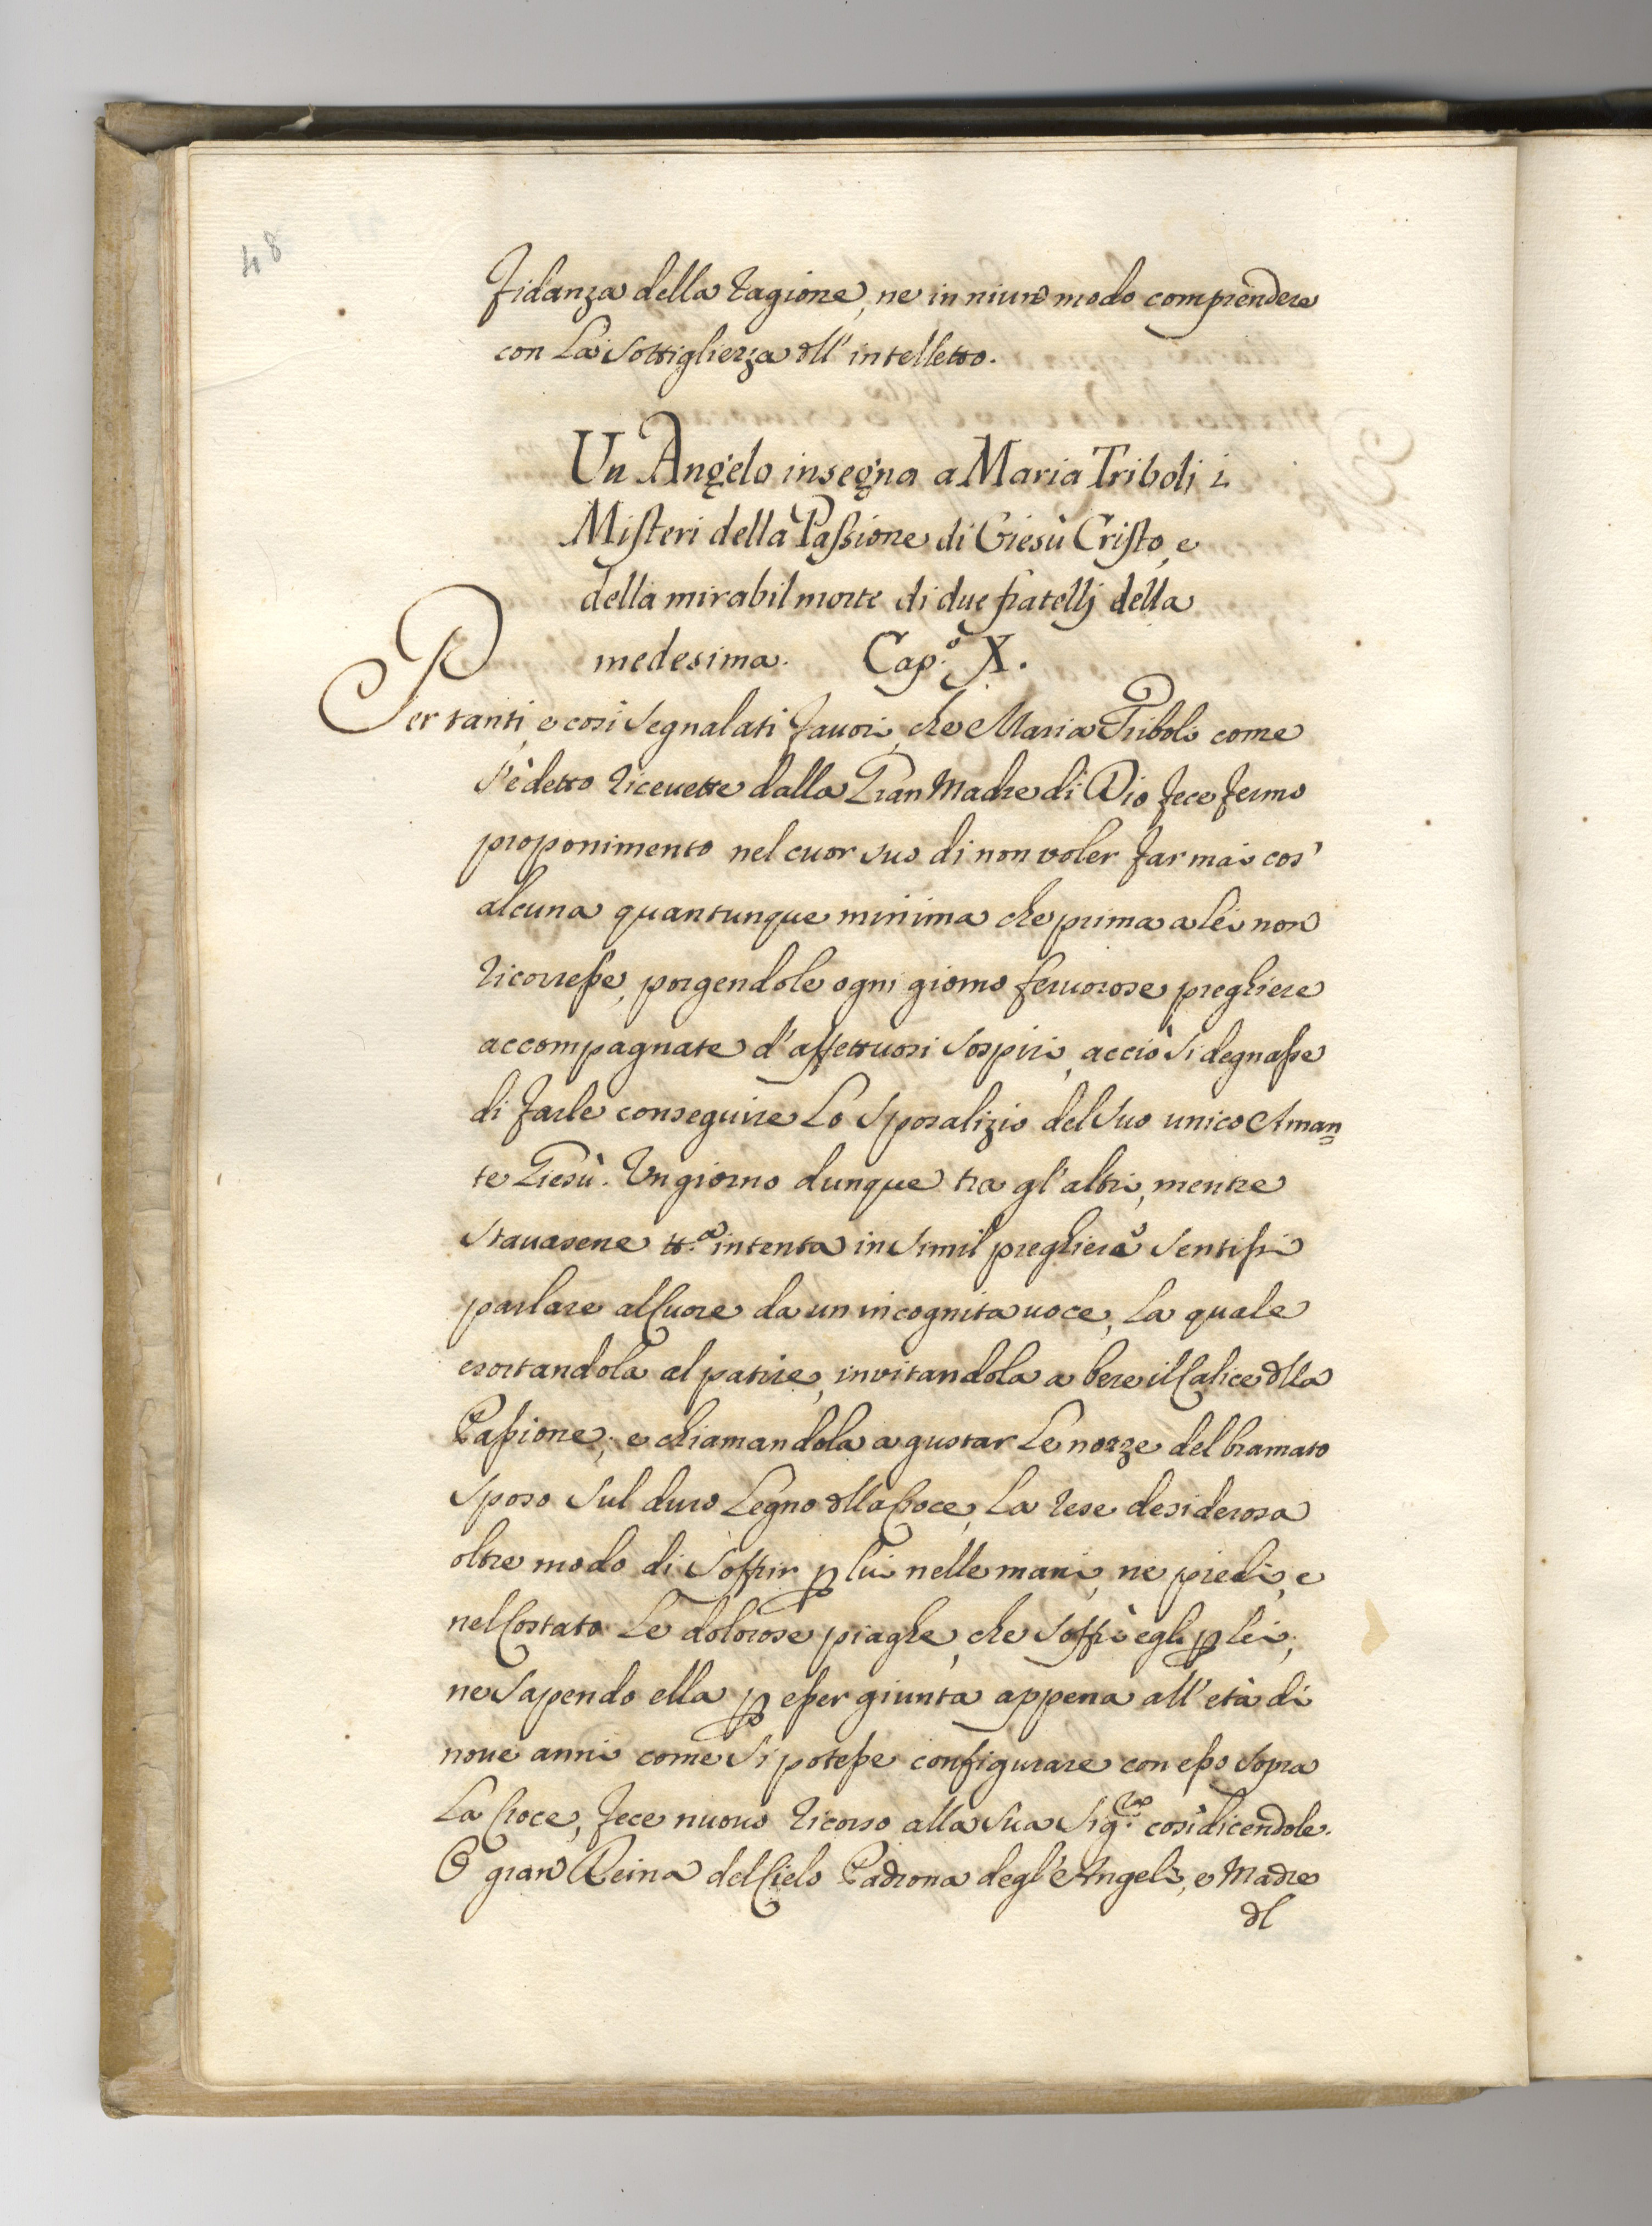 48
fidanza della ragione, ne in niun modo comprendere
con la sottigliezza dll' intelletto.
Un Angelo insegna a Maria Triboli i
Misteri della Passione di Giesù Cristo, e
della mirabil morte di due fratellj della
medesima. Cap.º X.
Per tanti, e così segnalati favori, che Maria Triboli come
s'è detto ricevette dalla Gran Madre di Dio fece fermo
proponimento nel cuor suo di non voler far mai cos'
alcuna quantunque minima che prima a lei non
ricorresse, porgendole ogni giorno fervorose preghiere
accompagnate d'affettuosi sospiri, acciò si degnasse
di farle conseguire lo sposalizio del suo unico Aman
te Giesù. Un giorno dunque tra gl'altri, mentre
stavasene tt.ª intenta in simil preghiera sentissi
parlare al Cuore da un incognita voce, la quale
esortandola al patire, invitandola a bere il Calice dlla
Passione, e chiamandola a gustar le nozze del bramato
sposo sul duro legno dlla Croce, la rese desiderosa
oltre modo di soffrir p lui nelle mani, ne piedi, e
nel Costato le dolorose piaghe, che soffrì egli p lei;
ne sapendo ella p esser giunta appena all'età di
nove anni come si potesse configurare con esso sopra
la Croce, fece nuovo ricorso alla sua Sig.ra così dicendole.
O gran Reina del Cielo Padrona degl'Angeli, e Madre
dl